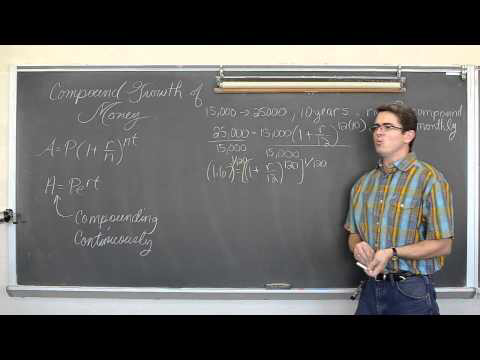 Compound Growth of
Money
A=P(1+r/n)^nt
A=Pe^rt
Compounding
Continuously
15,000→25000, 10 years - compound
monthly
25,000=15,000(1+r/12)^12(10)
15,000 15,000
(1.67)^1/120=[(1+r/12)^120]^1/120